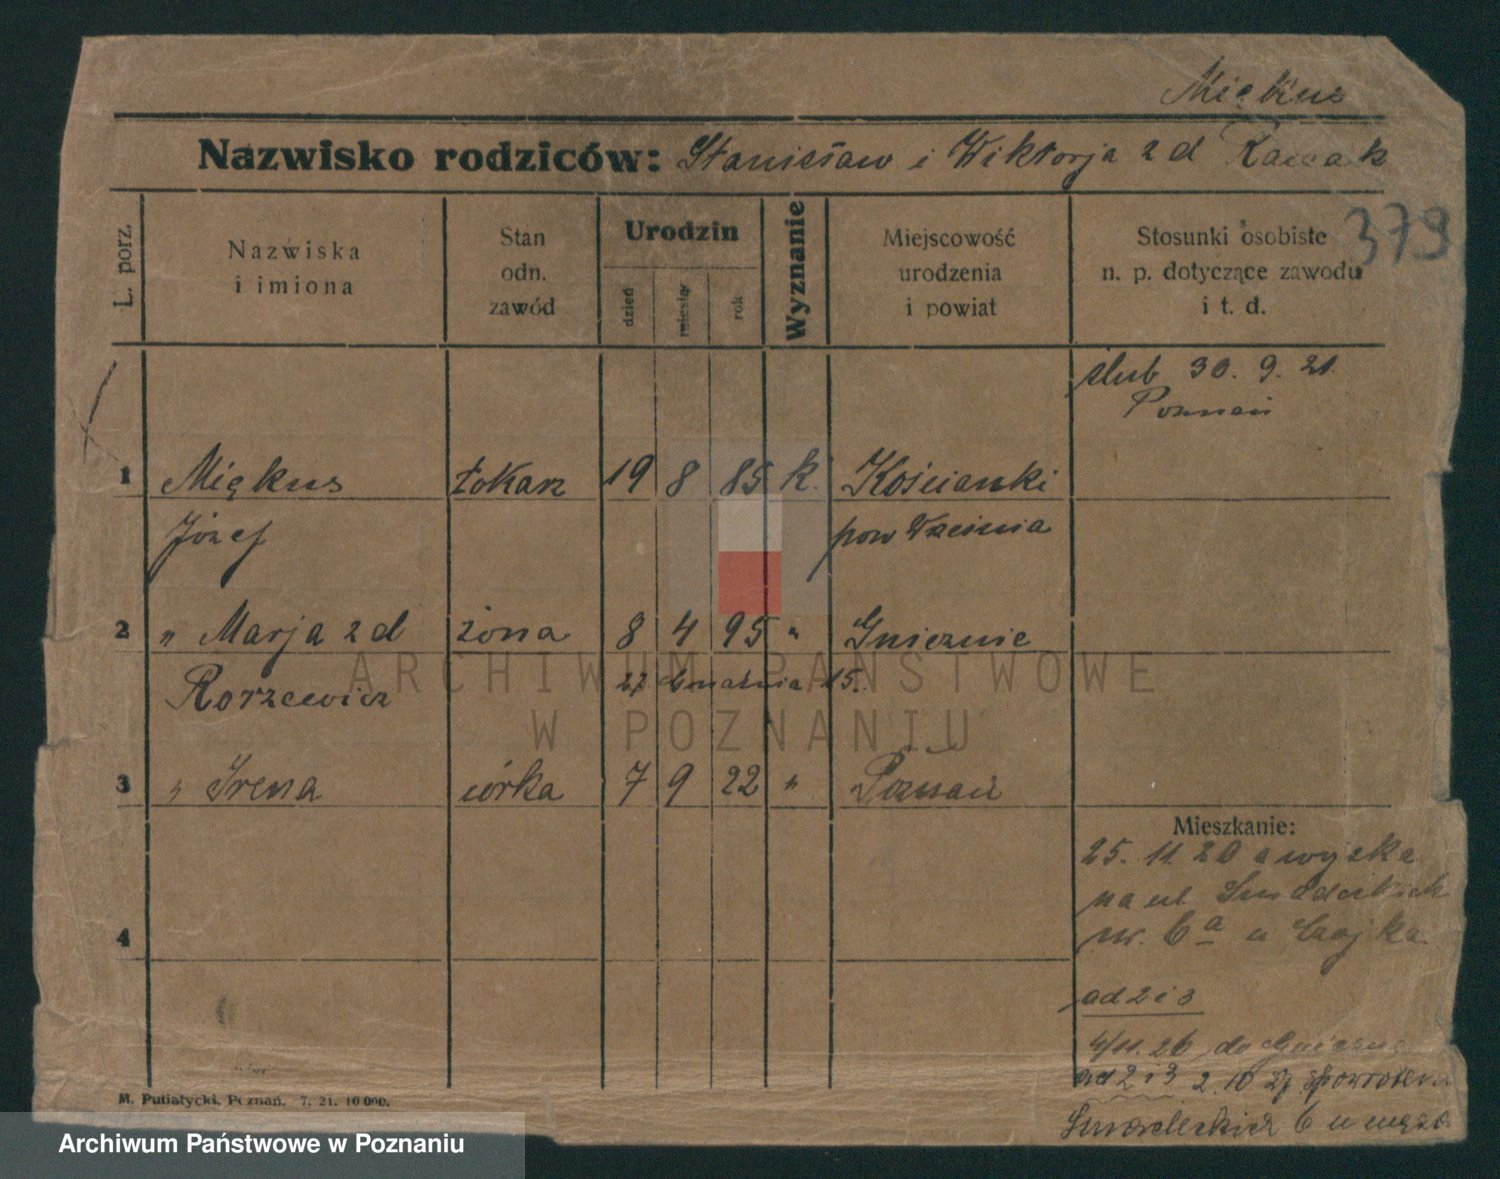 Miękus
Nazwisko rodziców: Stanisław i Wiktorja z d Raczak
379
L. porz.
Nazwiska
i imiona
Stan
odn.
zawód
Urodzin
dzień
miesiąc
rok
Wyznanie
Miejscowość
urodzenia
i powiat
Stosunki osobiste
n. p. dotyczące zawodu
i t. d.
ślub 30. 9. 21
Poznań
1 Miękus tokarz 19 8 85 k. Kościanki
Józef pow Września
2 " Marja z d żona 8 4 95 " Gnieznie
Korzewicz 27 15.
3 " Irena córka 7 9 22 " Poznań
4
Mieszkanie:
25. 11. 20 z wojska
na ul Śniadeckich
nr. 6a u
ad 2 i 3
4/11. 26 do Gniezna
ad 2 i 3 2. 10 27 spowrotem
Śniadeckich 6 u męża
M. Putiatycki, Poznań. 7. 21. 10 000.
ARCHIWUM PAŃSTWOWE
W POZNANIU
Archiwum Państwowe w Poznaniu